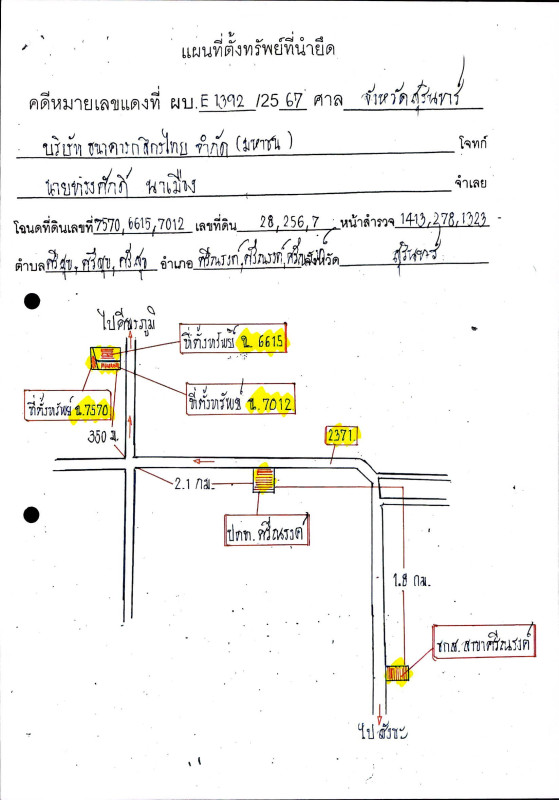 แผนที่ตั้งทรัพย์ที่นำยึด
คดีหมายเลขแดงที่ ผบ.E 1392 /25 67 ศาล จังหวัดสุรินทร์
บริษัท ธนาคารกสิกรไทย จำกัด (มหาชน) โจทก์
นายทรงศักดิ์ นาเมือง จำเลย
โฉนดที่ดินเลขที่ 7570, 6615, 7012 เลขที่ดิน 28, 256, 7 หน้าสำรวจ 1413, 278, 1323
ตำบล ศรีสุข, ศรีสุข, ศรีสุข อำเภอ ศรีณรงค์, ศรีณรงค์, ศรีณรงค์ จังหวัด สุรินทร์
ไปศีขรภูมิ
ที่ตั้งทรัพย์ ฉ. 6615
ที่ตั้งทรัพย์ ฉ.7570
ที่ตั้งทรัพย์ ฉ. 7012
350 ม.
2371
2.1 กม.
ปตท. ศรีณรงค์
1.8 กม.
ธกส. สาขาศรีณรงค์
ไป สังขะ